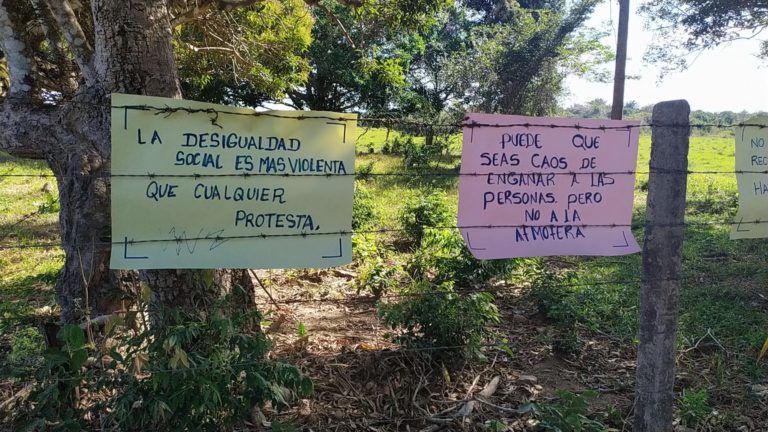 LA DESIGUALDAD
SOCIAL ES MAS VIOLENTA
QUE CUALQUIER
PROTESTA.
PUEDE QUE
SEAS CAOS DE
ENGANAR A LAS
PERSONAS. PERO
NO A LA
ATMOFERA
NO
REC
HA